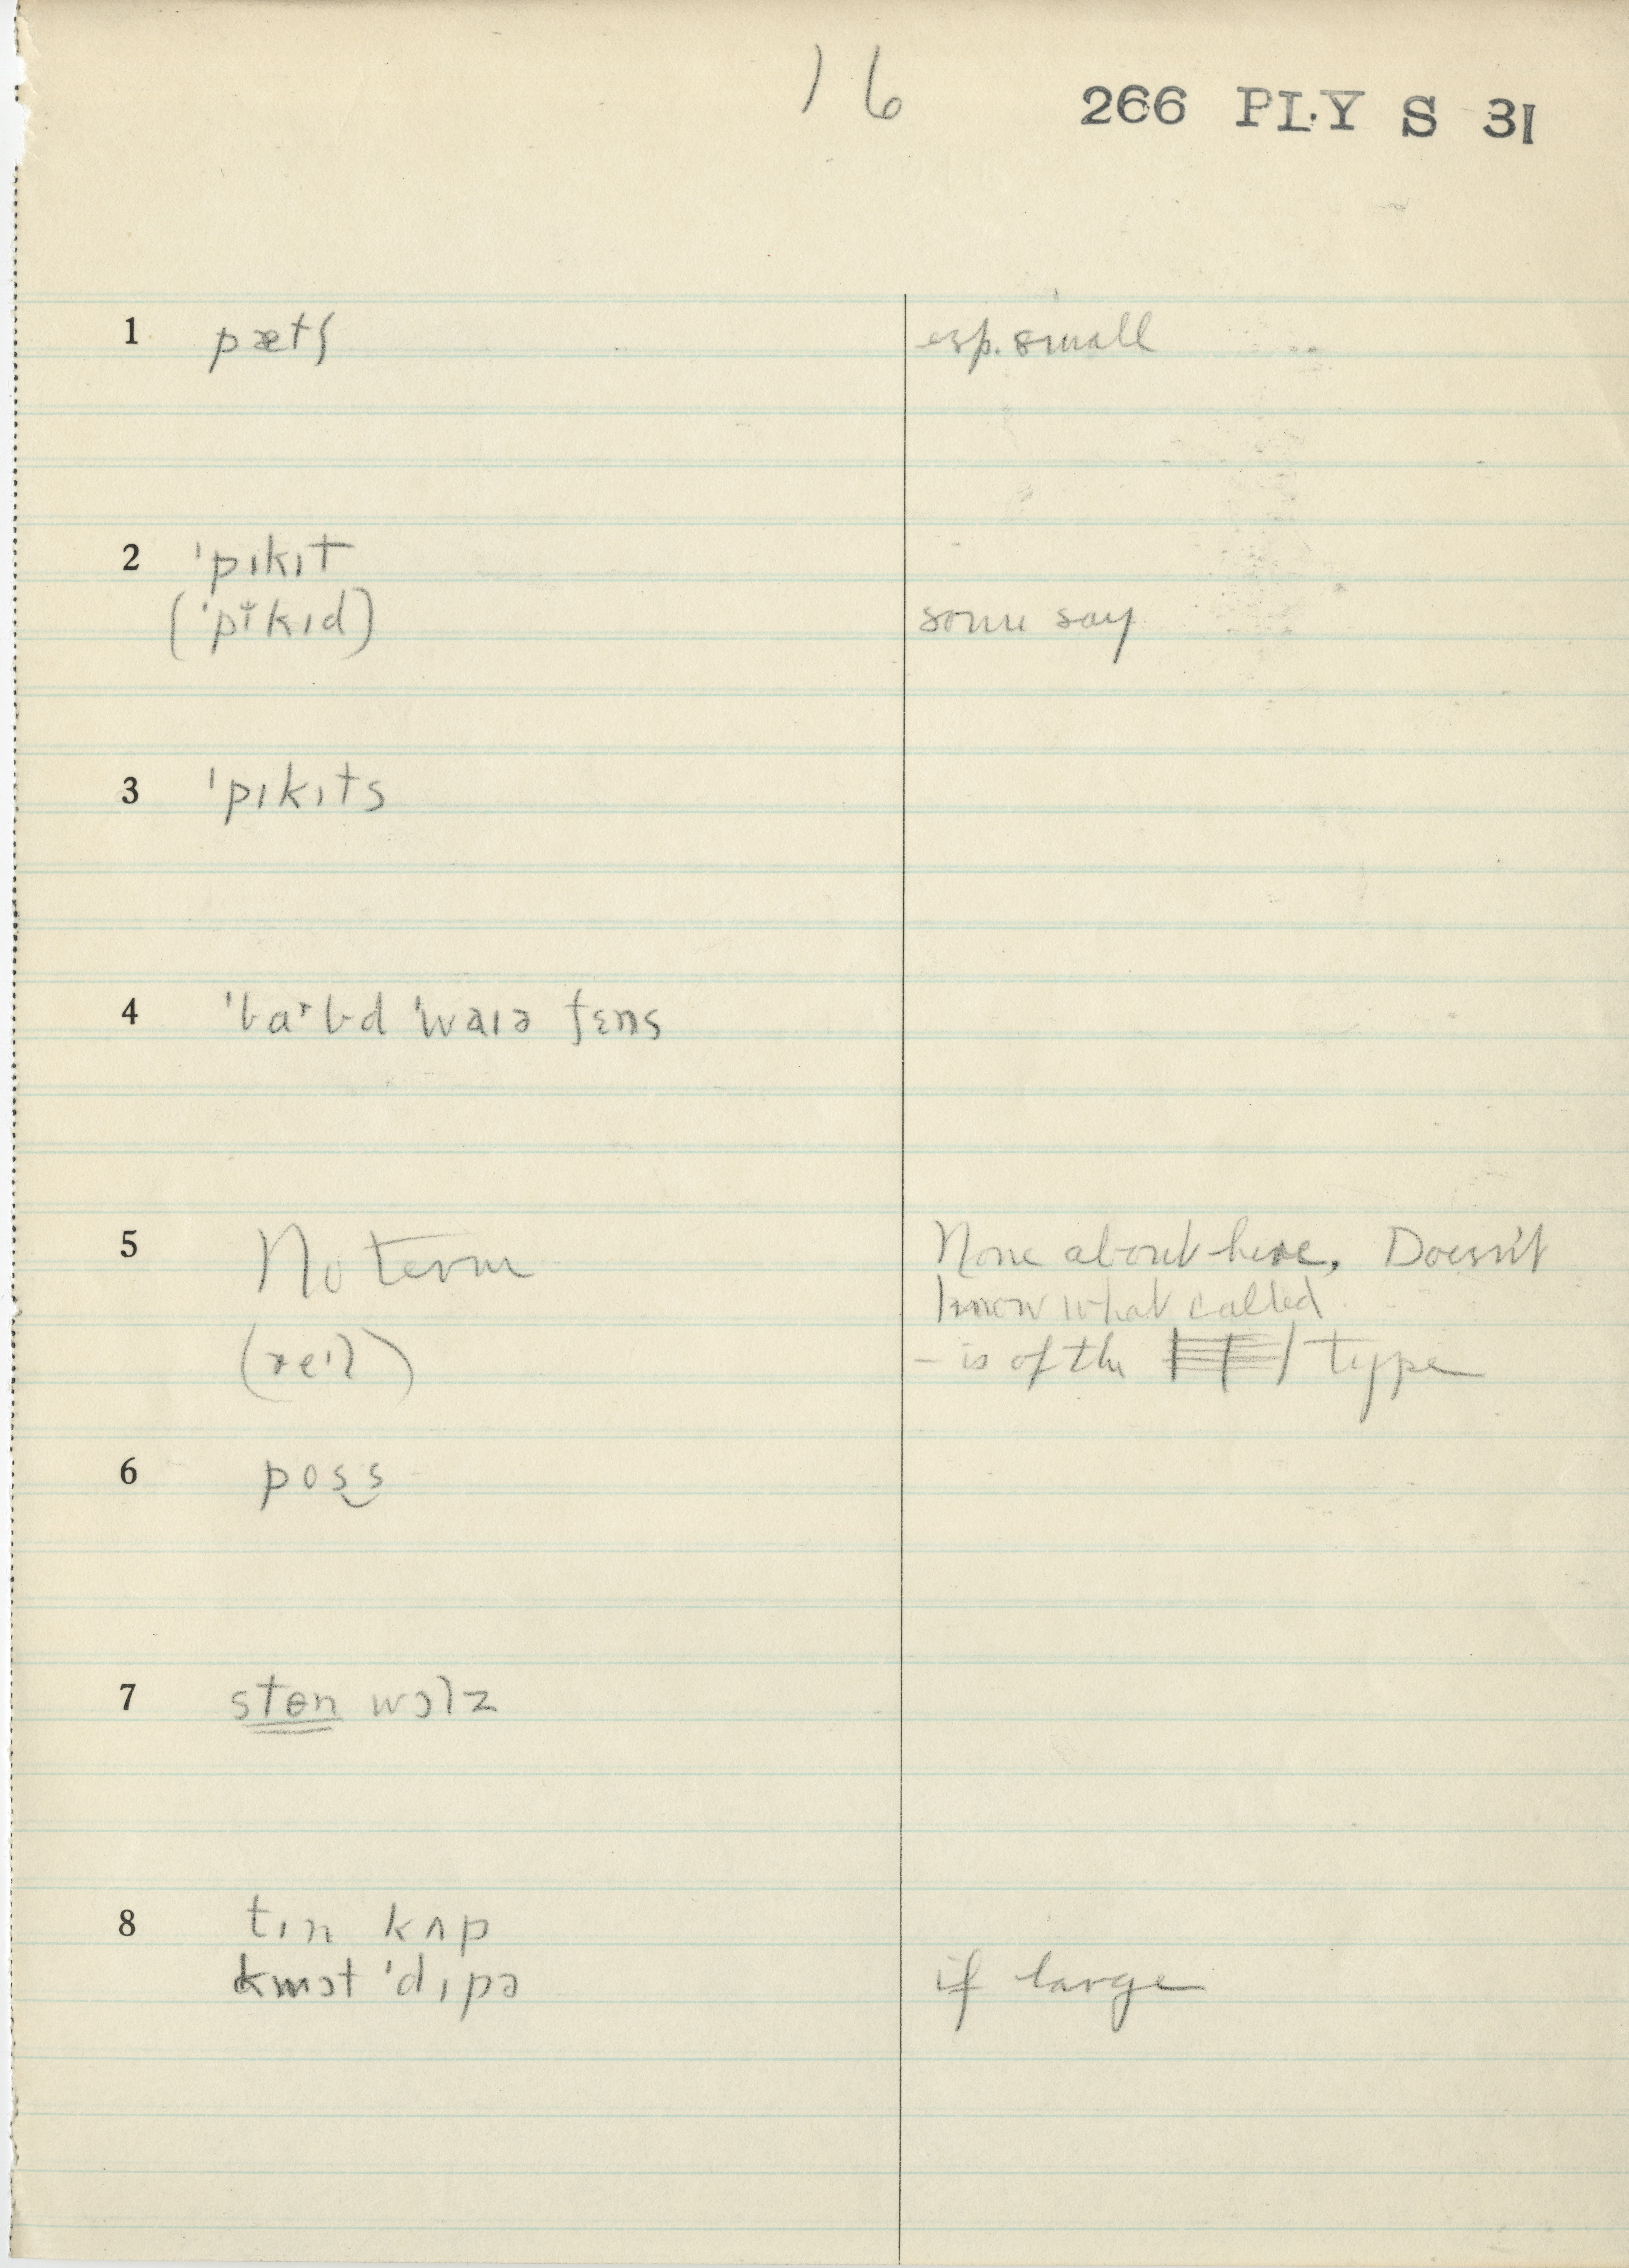 16
266 PLY S 31
1 pætʃ esp. small
2 ˈpɪkɪt
(ˈpɪkɪd) some say
3 ˈpɪkɪts
4 ˈbaˑbd ˈwaɪə fɛns
5 No term None about here, Doesn't
know what called
(reˑl) – is of the type
6 pos‿s
7 sten wɔlz
8 tɪn kʌp
kwɔt ˈdɪpə if large